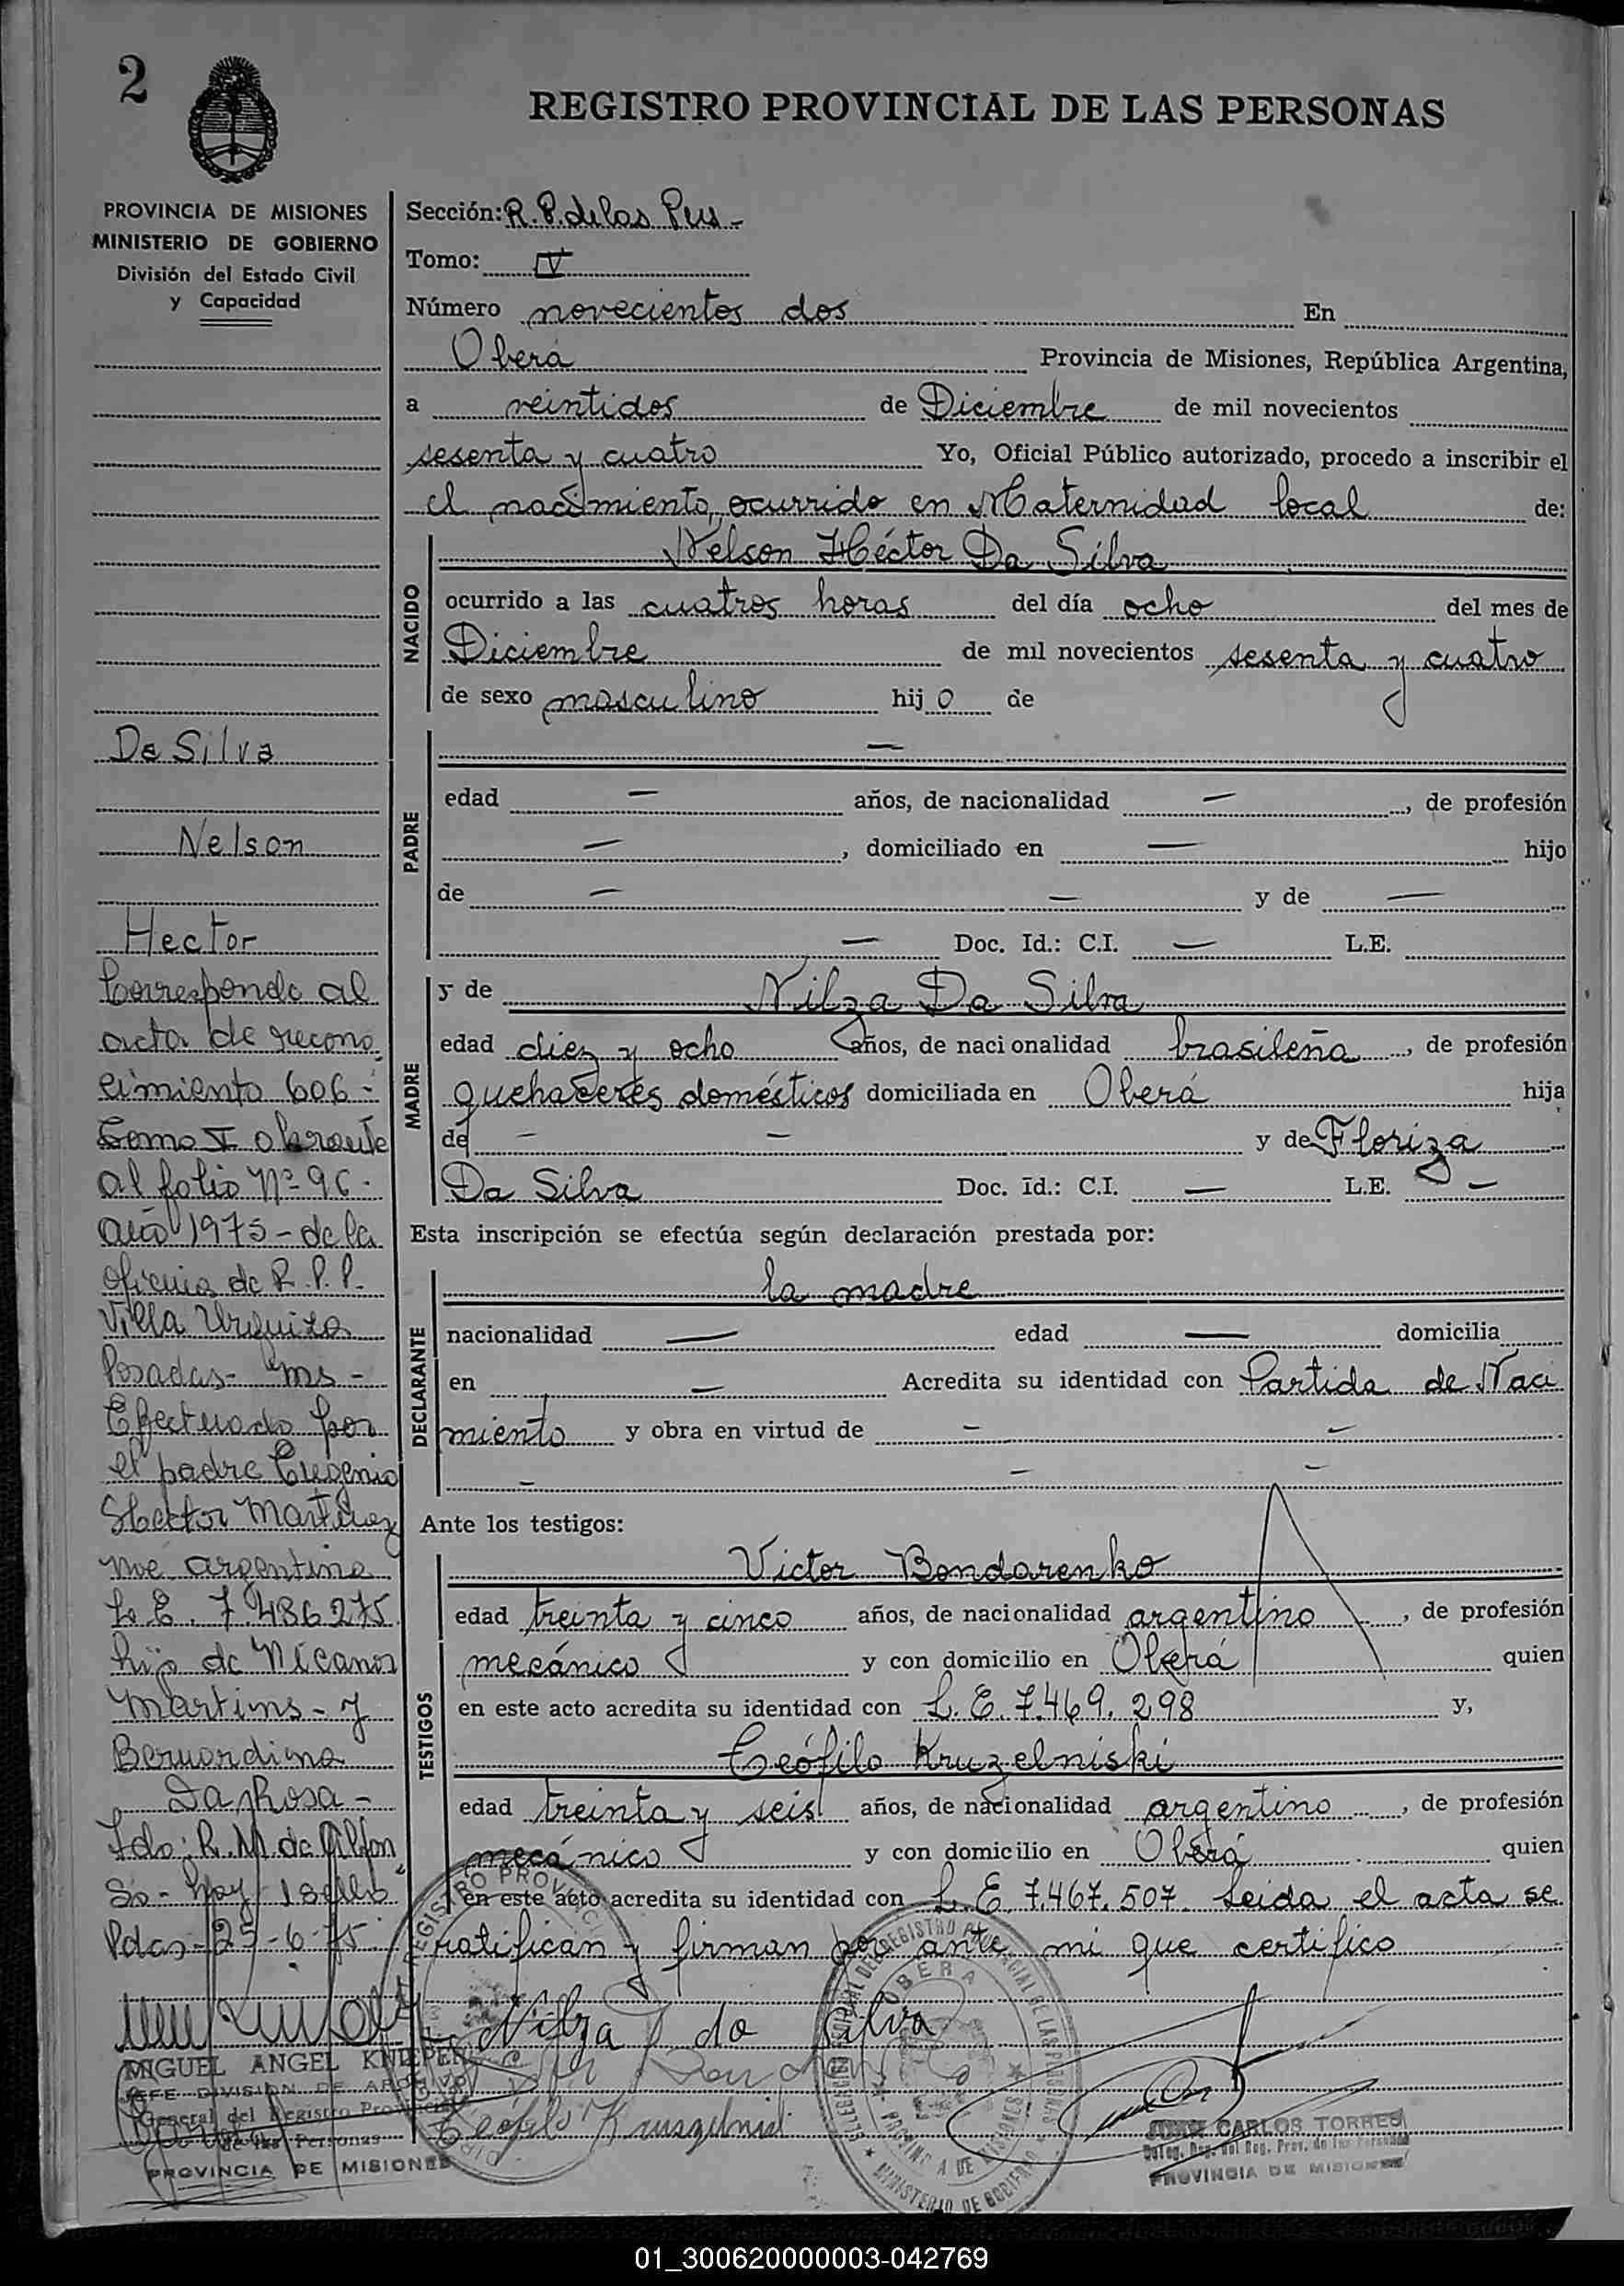 2
REGISTRO PROVINCIAL DE LAS PERSONAS
PROVINCIA DE MISIONES
MINISTERIO DE GOBIERNO
División del Estado Civil
y Capacidad
Da Silva
Nelson
Hector
Corresponde al
acta de recono
cimiento 606 -
Tomo I obrante
al folio Nº 96.
año 1975 - de la
oficina de R.P.P.
Villa Urquiza
Posadas - Mns -
Efectuado por
el padre Eugenio
Hector Martinez
argentina
L.E. 7.486275
hijo de Nicanor
Martins - y
Bernardina
Da Rosa -
Fdo: R.M. de Alfon
so - hay 1 sello
Pdas - 25-6-75
MIGUEL ANGEL KNIEPER
JEFE DIVISION DE ARCHIVO
General del Registro Provincial
de las Personas
PROVINCIA DE MISIONES
Sección: R.P. de las Pers -
Tomo: IV
Número novecientos dos En
Oberá Provincia de Misiones, República Argentina,
a veintidos de Diciembre de mil novecientos
sesenta y cuatro Yo, Oficial Público autorizado, procedo a inscribir el
el nacimiento, ocurrido en Maternidad local de:
NACIDO
Nelson Héctor Da Silva
ocurrido a las cuatros horas del día ocho del mes de
Diciembre de mil novecientos sesenta y cuatro
de sexo masculino hijo de
PADRE
—
edad — años, de nacionalidad —, de profesión
—, domiciliado en — hijo
de — — y de —
— Doc. Id.: C.I. — L.E.
MADRE
y de Nilza Da Silva
edad diez y ocho años, de nacionalidad brasileña, de profesión
quehaceres domésticos domiciliada en Oberá hija
de — — y de Floriza
Da Silva Doc. Id.: C.I. — L.E. —
Esta inscripción se efectúa según declaración prestada por:
DECLARANTE
la madre
nacionalidad — edad — domicilia
en — Acredita su identidad con Partida de Naci
miento y obra en virtud de — —
— — —
Ante los testigos:
TESTIGOS
Victor Bondarenko
edad treinta y cinco años, de nacionalidad argentino, de profesión
mecánico y con domicilio en Oberá quien
en este acto acredita su identidad con L.E. 7.469.298 y,
Teófilo Kruzelniski
edad treinta y seis años, de nacionalidad argentino, de profesión
mecánico y con domicilio en Oberá quien
en este acto acredita su identidad con L.E. 7.467.507. Leida el acta se
ratifican y firman por ante mi que certifico
Nilza da Silva
Teófilo
JORGE CARLOS TORRES
PROVINCIA DE MISIONES
DELEGACION REGIONAL DEL REGISTRO PROVINCIAL DE LAS PERSONAS
OBERA
PROVINCIA DE MISIONES
MINISTERIO DE GOBIERNO
01_300620000003-042769